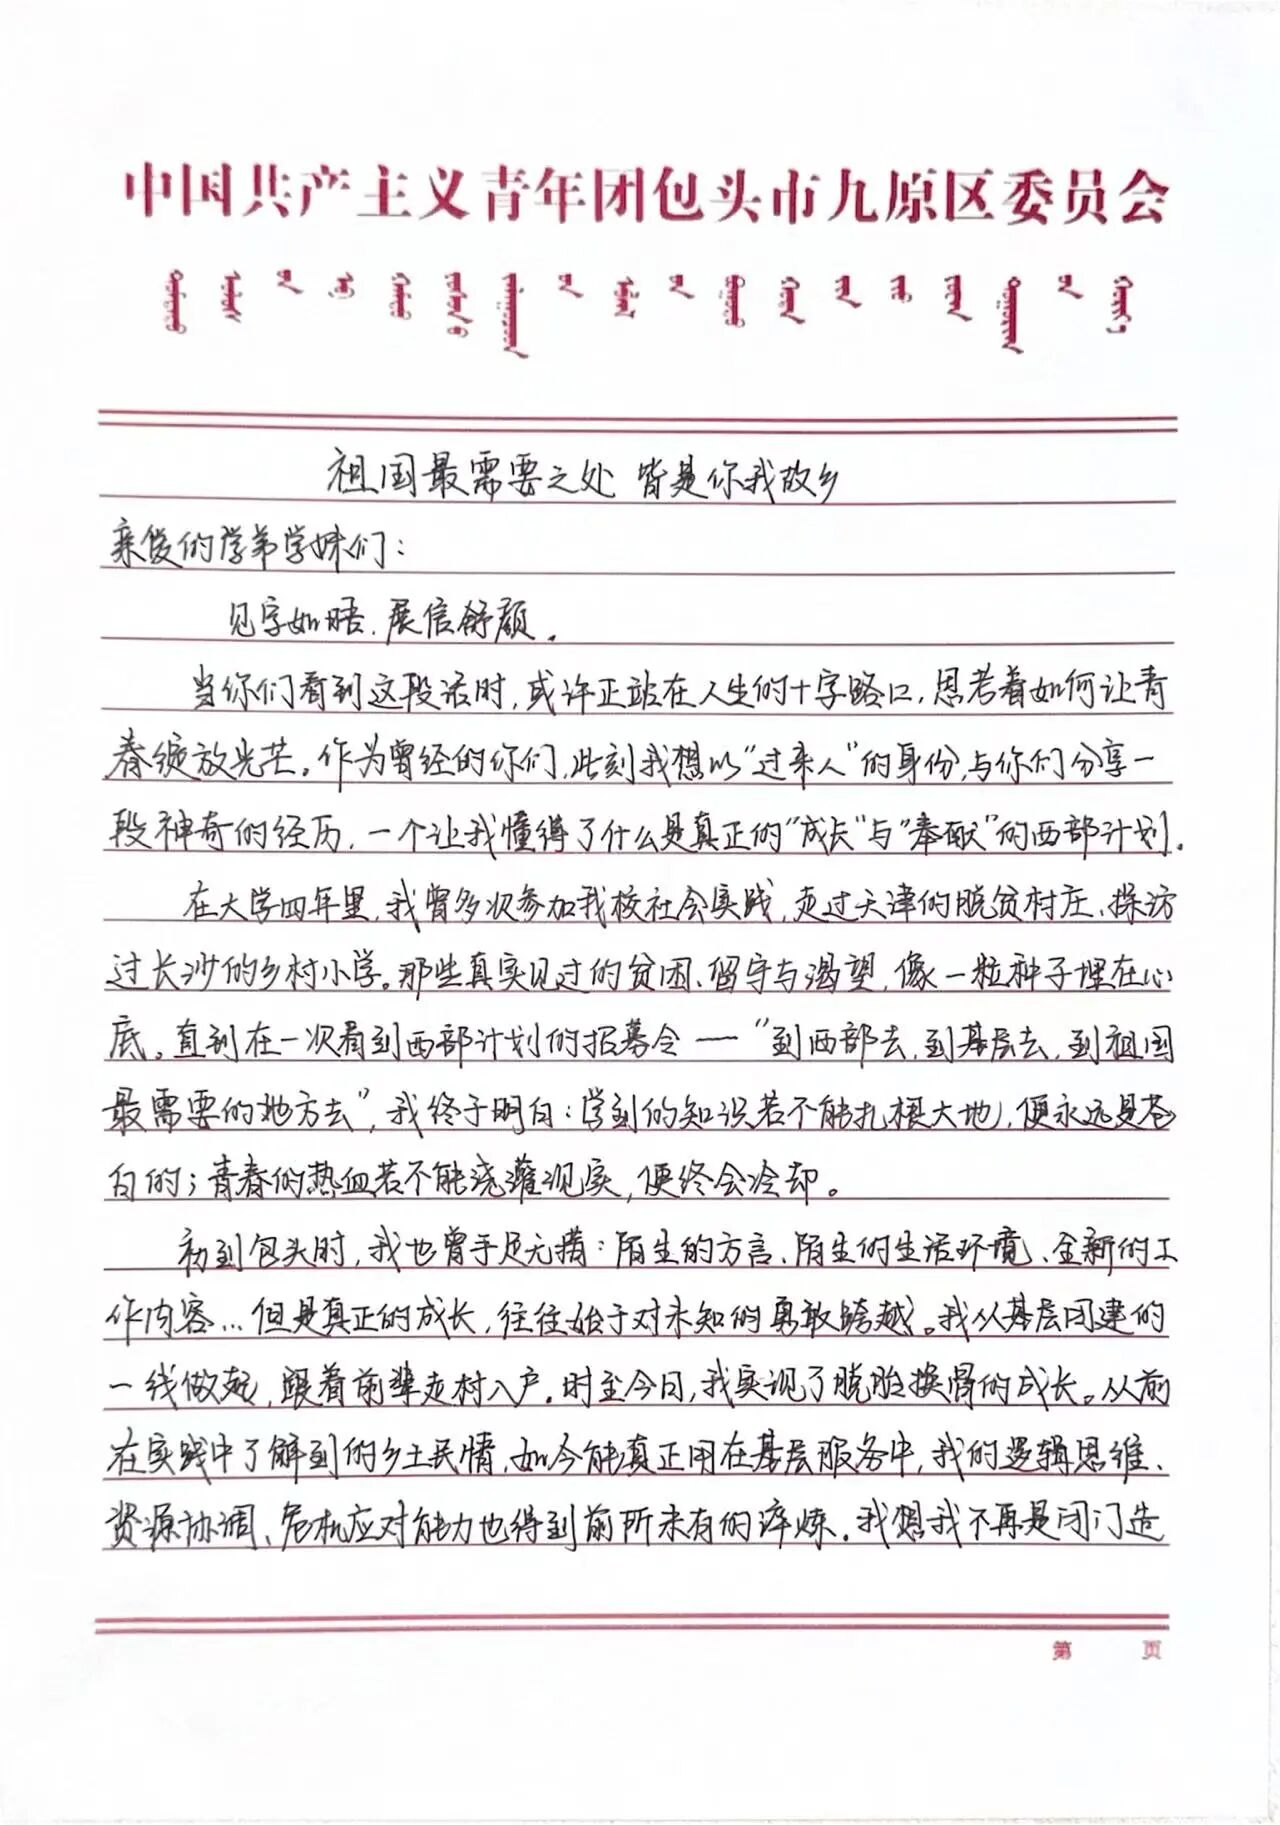 中国共产主义青年团包头市九原区委员会
祖国最需要之处 皆是你我故乡
亲爱的学弟学妹们：
见字如晤，展信舒颜。
当你们看到这段话时，或许正站在人生的十字路口，思考着如何让青
春绽放光芒。作为曾经的你们，此刻我想以“过来人”的身份，与你们分享一
段神奇的经历，一个让我懂得了什么是真正的“成长”与“奉献”的西部计划。
在大学四年里，我曾多次参加我校社会实践，走过天津的脱贫村庄、探访
过长沙的乡村小学。那些真实见过的贫困、留守与渴望，像一粒种子埋在心
底。直到在一次看到西部计划的招募令——“到西部去，到基层去，到祖国
最需要的地方去”，我终于明白：学到的知识若不能扎根大地，便永远是苍
白的；青春的热血若不能浇灌现实，便终会冷却。
初到包头时，我也曾手足无措：陌生的方言、陌生的生活环境、全新的工
作内容…但是真正的成长，往往始于对未知的勇敢跨越。我从基层团建的
一线做起，跟着前辈走村入户。时至今日，我实现了脱胎换骨的成长。从前
在实践中了解到的乡土民情，如今能真正用在基层服务中，我的逻辑思维、
资源协调、危机应对能力也得到前所未有的淬炼。我想我不再是闭门造
第 页